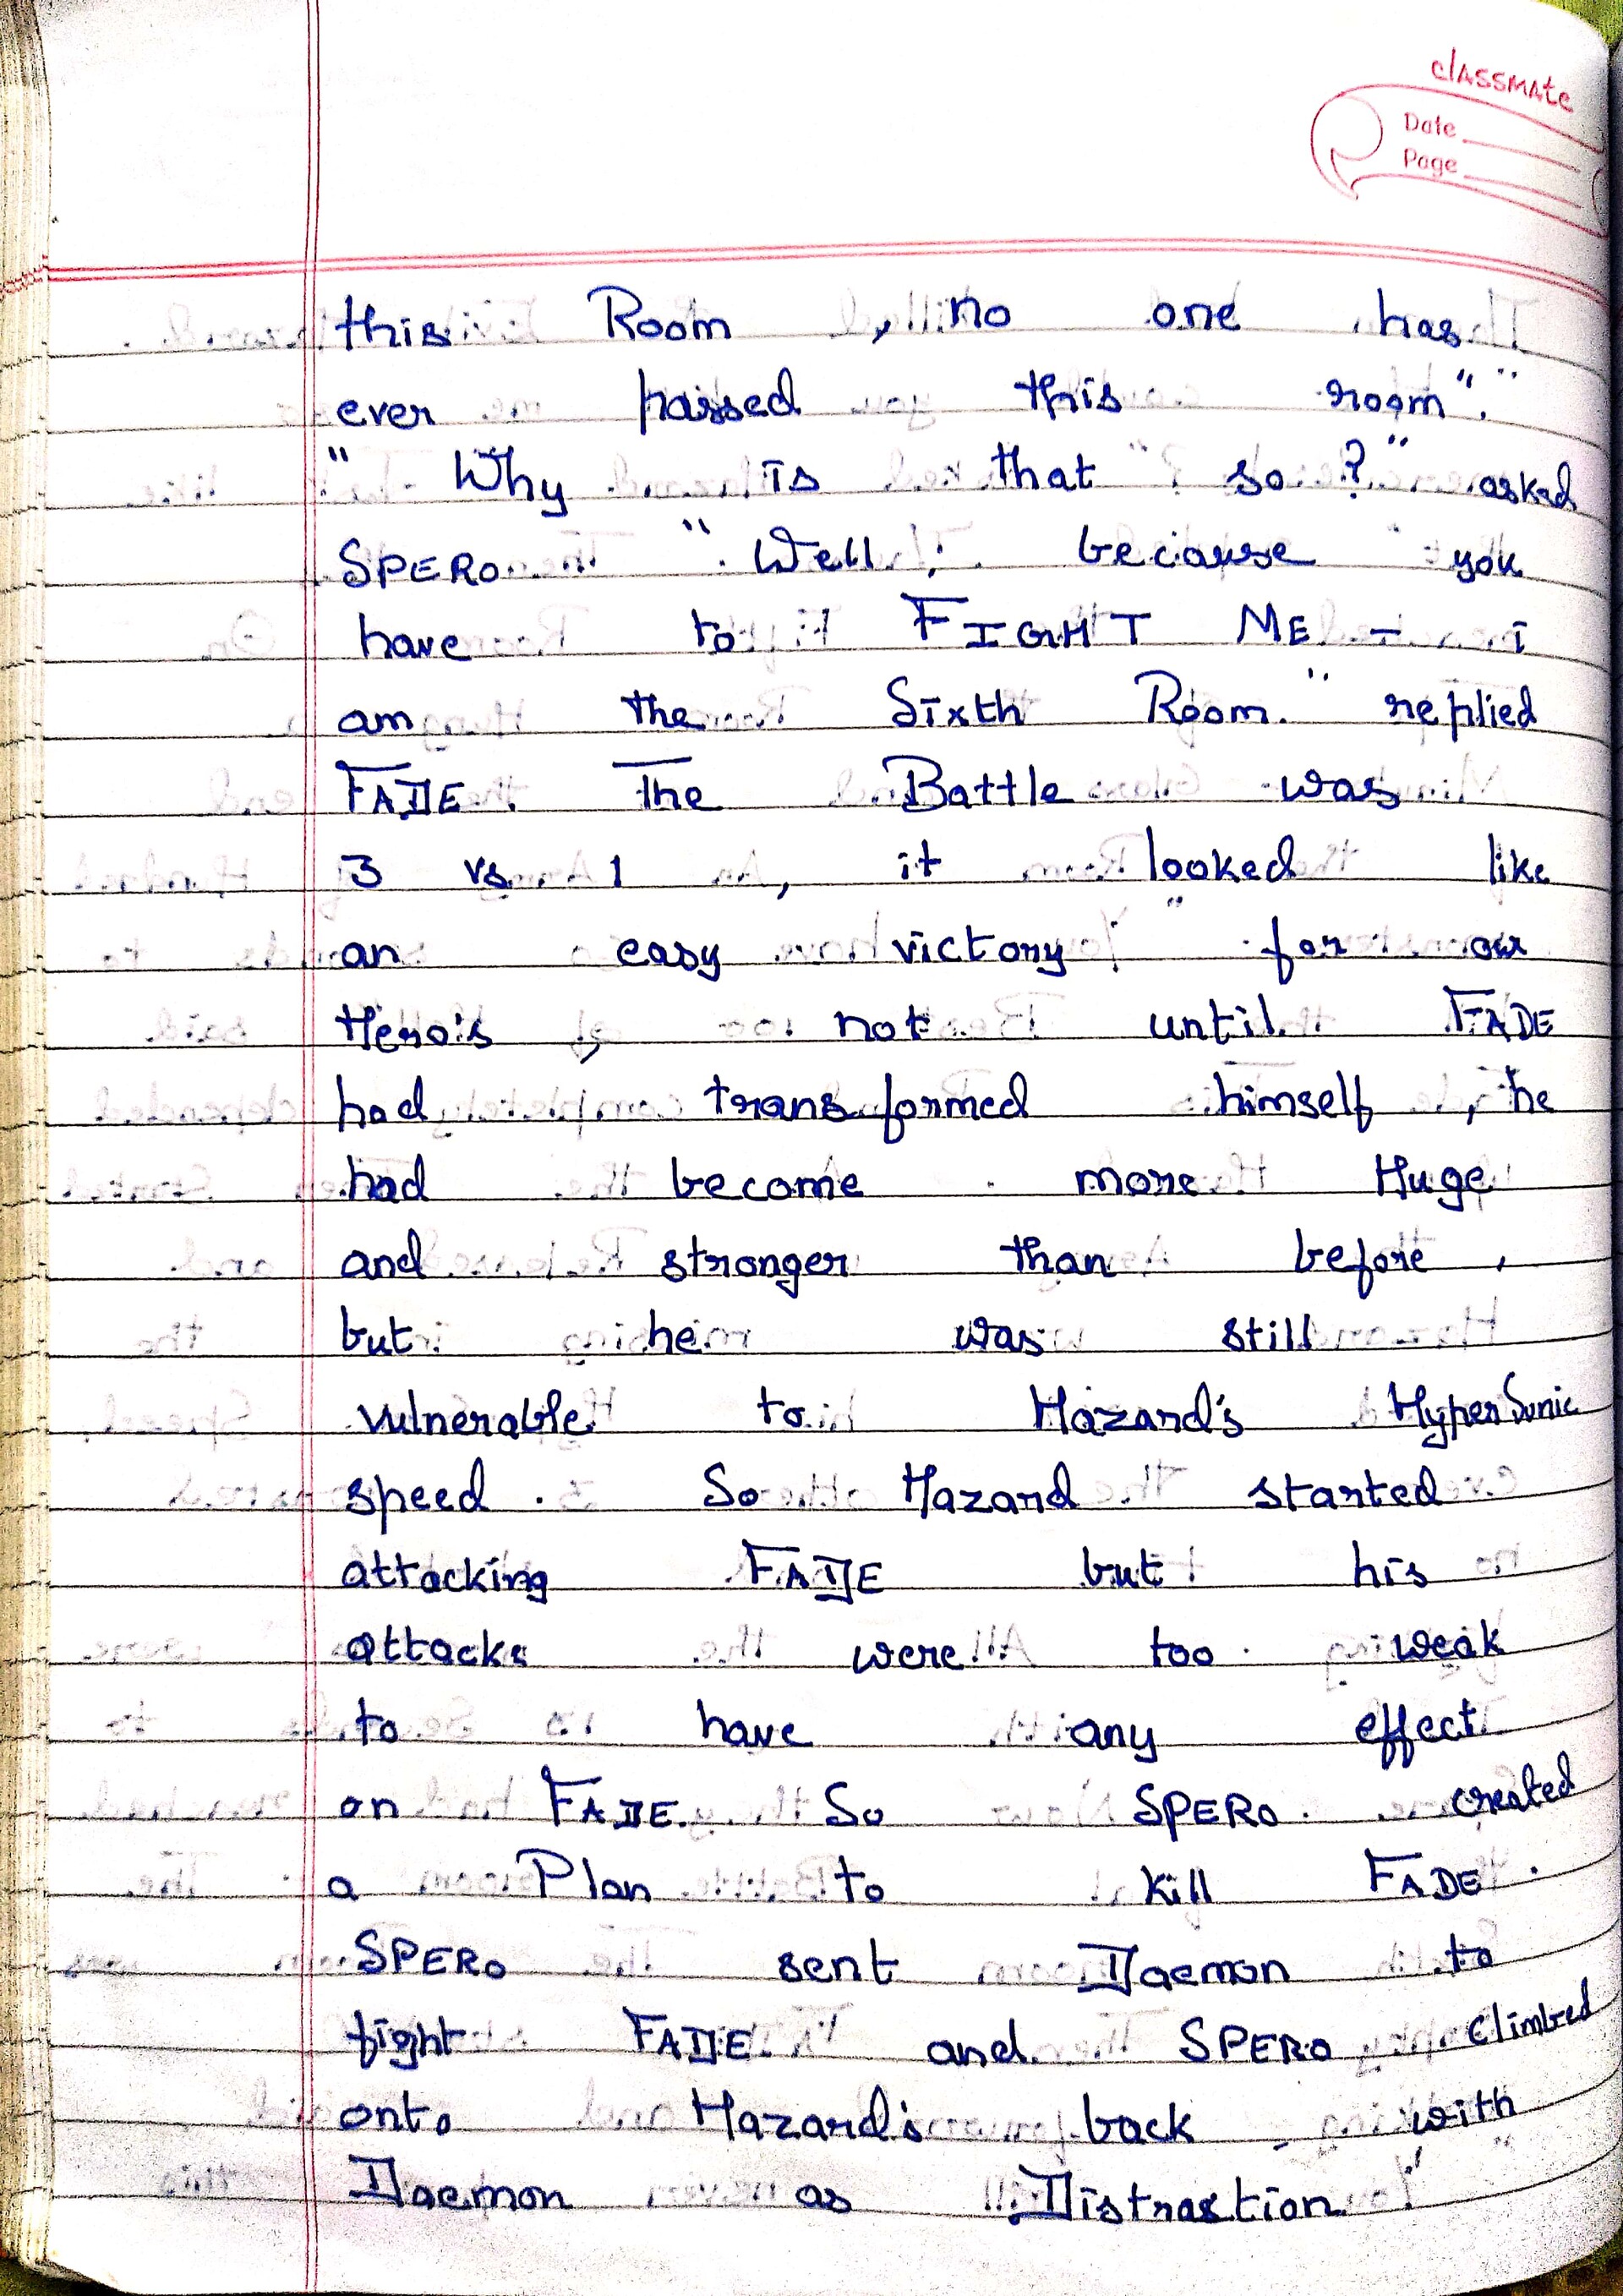 classmate
Date
Page
this Room , no one has
ever passed this room".
" Why is that so ?" asked
SPERO " Well , because you
have to FIGHT ME - I
am the Sixth Room." replied
FADE The Battle was
3 vs 1 , it looked like
an easy victory for our
Hero's , not until FADE
had transformed himself , he
had become more Huge
and stronger than before ,
but he was still
vulnerable to Hazard's HyperSonic
speed . So Hazard started
attacking FADE but his
attacks were too weak
to have any effect
on FADE. So SPERO created
a Plan to kill FADE .
SPERO sent Daemon to
fight FADE and SPERO climbed
onto Hazard's back with
Daemon as Distrastion